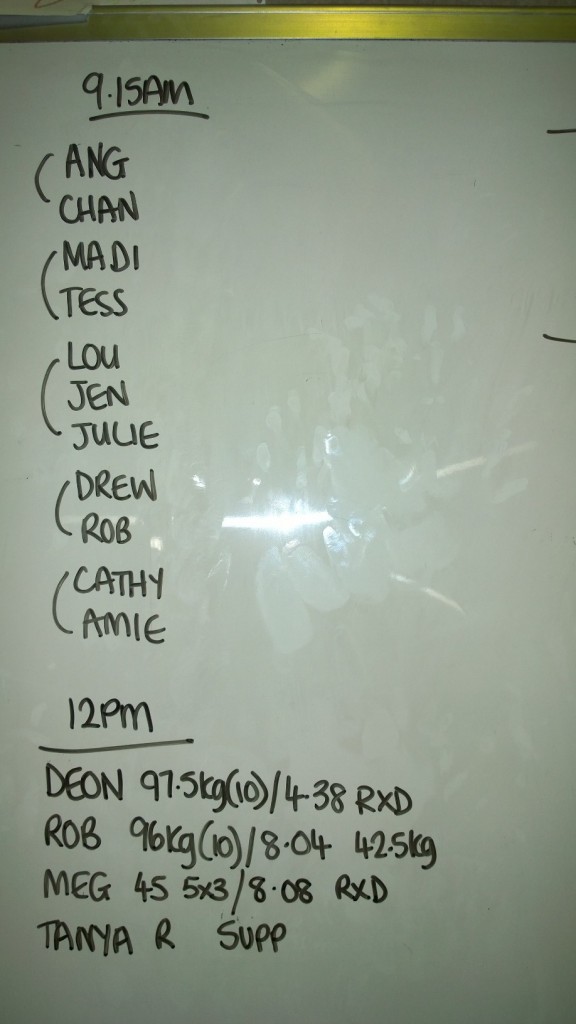 9.15AM
ANG
CHAN
MADI
TESS
LOU
JEN
JULIE
DREW
ROB
CATHY
AMIE
12PM
DEON 97.5kg(10)/4.38 RXD
ROB 96kg(10)/8.04 42.5kg
MEG 45 5x3/8.08 RXD
TANYA R SUPP